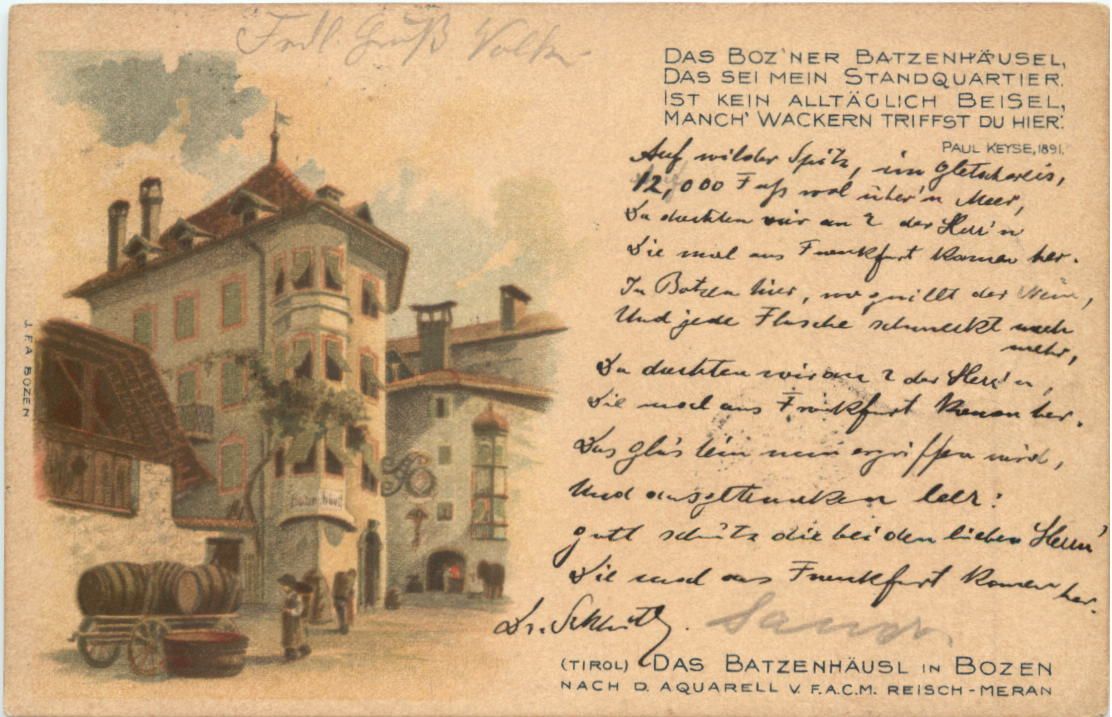 Frdl. Gruß Volk
DAS BOZ'NER BATZENHÄUSEL,
DAS SEI MEIN STANDQUARTIER.
IST KEIN ALLTÄGLICH BEISEL,
MANCH' WACKERN TRIFFST DU HIER.
PAUL KEYSE, 1891.
Auf wilder Spitz, im Gletschereis,
12,000 Fuß wol über'n Meer,
Da dachten wir an 2 der Herr'n
Die mal aus Frankfurt kamen her.
In Botzen hier, wo quillt der Wein,
Und jede Flasche schmeckt nach
mehr,
Da dachten wir an 2 der Herr'n,
Die mal aus Frankfurt kamen her.
Das gläslein nun ergriffen wird,
Und ausgetrunken leer:
gott schütz die beiden lieben Herrn'
Die mal aus Frankfurt kamen her.
Dr.
J. F. A. BOZEN
Batzenhäusl
(TIROL) DAS BATZENHÄUSL IN BOZEN
NACH D. AQUARELL V. F.A.C.M. REISCH-MERAN